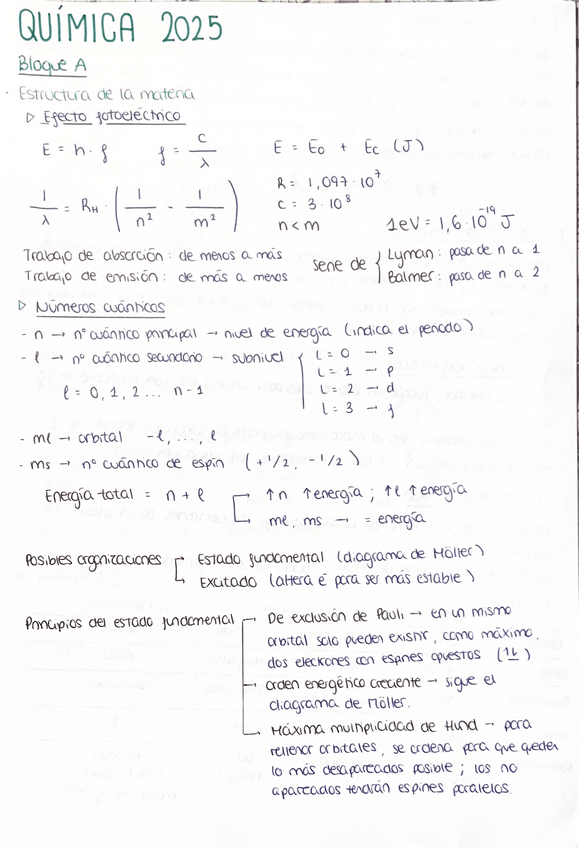 QUÍMICA 2025
Bloque A
· Estructura de la materia
▷ Efecto fotoeléctrico
E = h · f    f = c/λ    E = E₀ + Ec (J)
1/λ = R_H · (1/n² - 1/m²)
R = 1,097·10⁷
c = 3·10⁸
n < m    1eV = 1,6·10⁻¹⁹ J
Trabajo de absorción: de menos a más
Trabajo de emisión: de más a menos
serie de { Lyman: pasa de n a 1
Balmer: pasa de n a 2
▷ Números cuánticos
- n → nº cuántico principal → nivel de energía (indica el periodo)
- l → nº cuántico secundario → subnivel { L = 0 → s
L = 1 → p
l = 0, 1, 2 ... n - 1
L = 2 → d
L = 3 → f
- ml → orbital -l, ..., l
- ms → nº cuántico de espín (+1/2, -1/2)
Energía total = n + l → ↑n ↑energía ; ↑l ↑energía
→ ml, ms → = energía
Posibles organizaciones Estado fundamental (diagrama de Möller)
Excitado (altera e⁻ para ser más estable)
Principios del estado fundamental → De exclusión de Pauli → en un mismo
orbital solo pueden existir, como máximo,
dos electrones con espines opuestos (↑↓)
→ orden energético creciente → sigue el
diagrama de Möller.
→ Máxima multiplicidad de Hund → para
rellenar orbitales, se ordena para que queden
lo más desapareados posible ; los no
apareados tendrán espines paralelos.